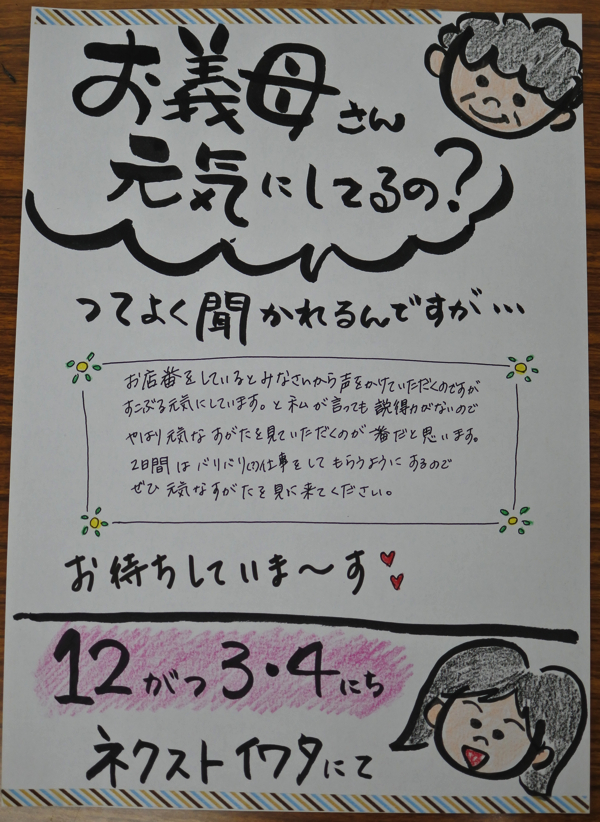 お義母さん
元気にしてるの?
ってよく聞かれるんですが…
お店番をしているとみなさいから声をかけていただくのですが
すこぶる元気にしています。と私が言っても説得力がないので
やはり元気なすがたを見ていただくのが一番だと思います。
2日間はバリバリ(?)仕事をしてもらうようにあるので
ぜひ元気なすがたを見に来てください。
お待ちしていま〜す
12がつ3・4にち
ネクストイワタにて